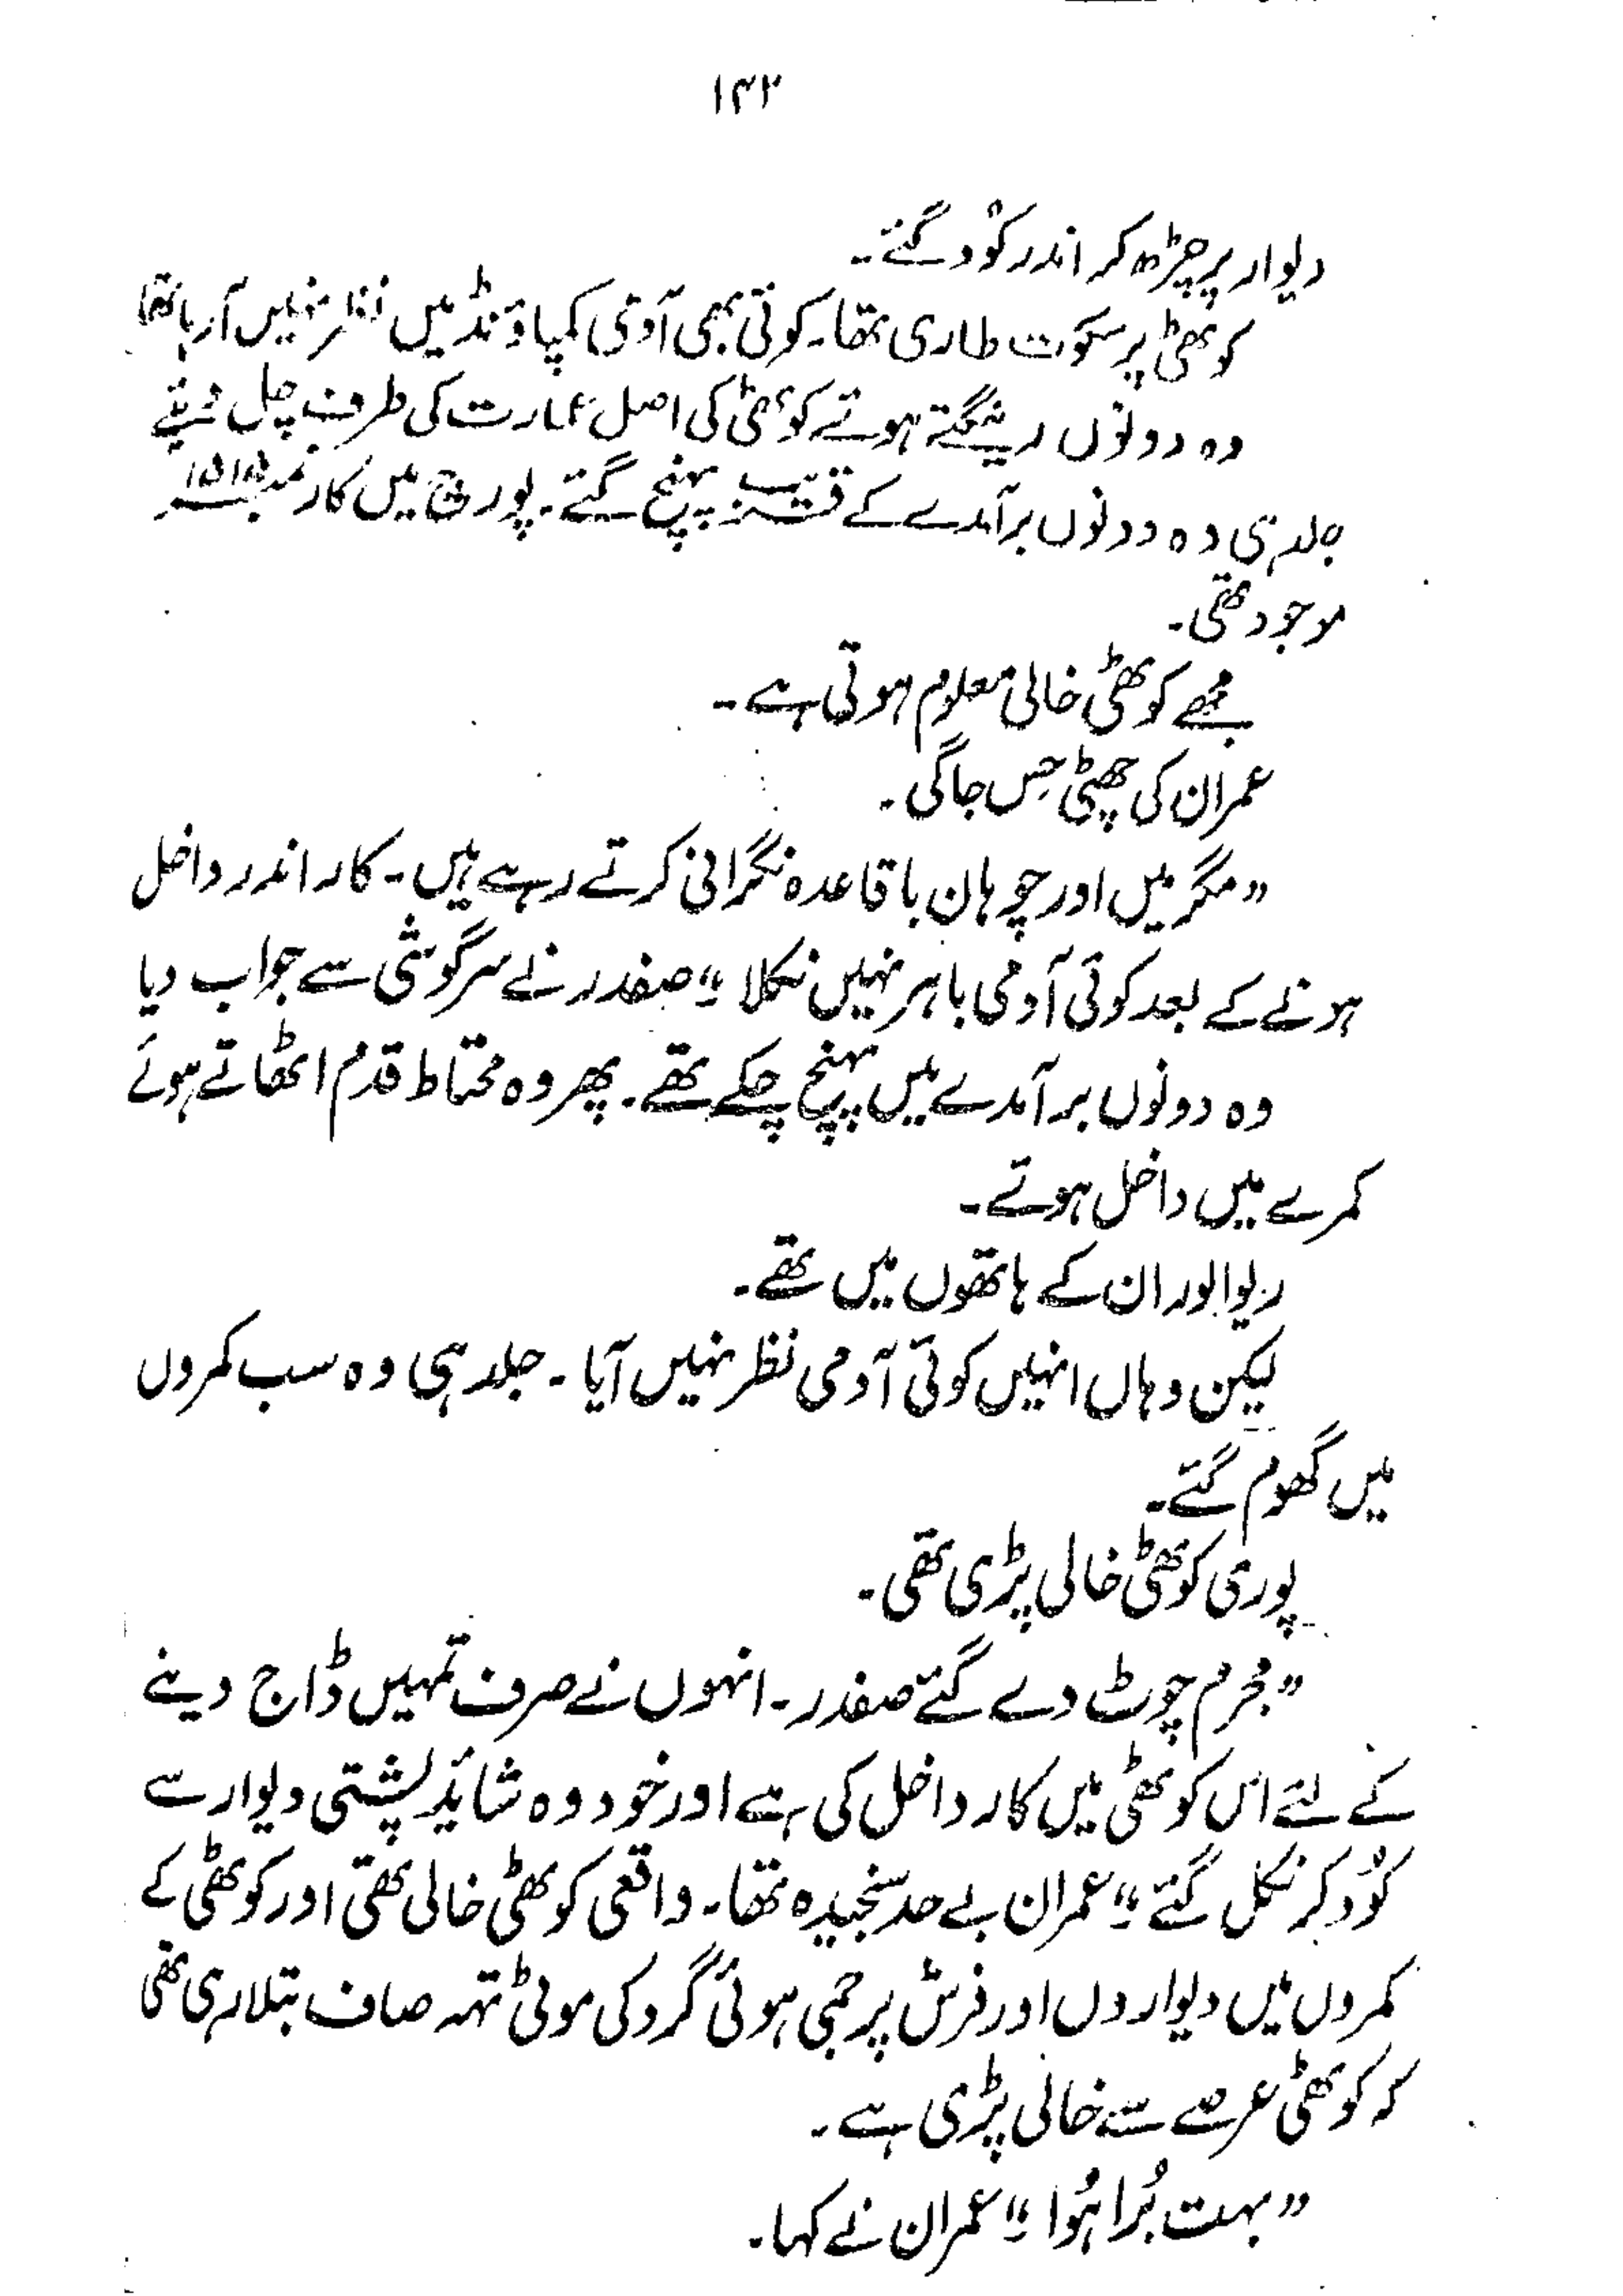 ۱۴۲
دیوار پر چڑھ کر اندر کوُد گئے۔
کوٹھی پر سکوت طاری تھا۔ کوئی بھی آدمی کمپاؤنڈ میں نظر نہیں آ رہا تھا
وہ دونوں رینگتے ہوئے کوٹھی کی اصل عمارت کی طرف چل دیئے
جلد ہی وہ دونوں برآمدے کے قریب پہنچ گئے۔ پورچ میں کار نمبر ۱۵۱۵
موجود تھی۔
مجھے کوٹھی خالی معلوم ہوتی ہے۔
عمران کی چھٹی حِس جاگی۔
"مگر میں اور چوہان باقاعدہ نگرانی کرتے رہے ہیں۔ کار اندر داخل
ہونے کے بعد کوئی آدمی باہر نہیں نکلا۔" صفدر نے سرگوشی سے جواب دیا
وہ دونوں برآمدے میں پہنچ چکے تھے۔ پھر وہ محتاط قدم اٹھاتے ہوئے
کمرے میں داخل ہوئے۔
ریوالور ان کے ہاتھوں میں تھے۔
لیکن وہاں انہیں کوئی آدمی نظر نہیں آیا۔ جلد ہی وہ سب کمروں
میں گھوم گئے۔
پوری کوٹھی خالی پڑی تھی۔
"مجرم چوٹ دے گئے صفدر۔ انہوں نے صرف تمہیں ڈاج دینے
کے لئے اس کوٹھی میں کار داخل کی ہے اور خود وہ شائد پشتی دیوار سے
کوُد کر نکل گئے۔" عمران بے حد سنجیدہ تھا۔ واقعی کوٹھی خالی تھی اور کوٹھی کے
کمروں میں دیواروں اور فرش پر جمی ہوئی گرد کی موٹی تہہ صاف بتلا رہی تھی
کہ کوٹھی عرصے سے خالی پڑی ہے۔
"بہت بُرا ہُوا۔" عمران نے کہا۔